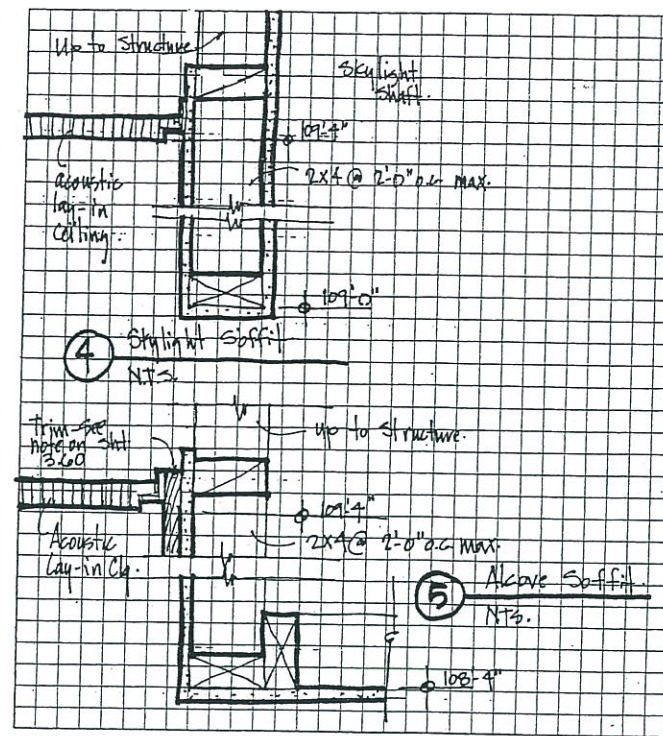 Up to Structure
Skylight
Shaft.
109'-4"
acoustic
lay-in
Ceiling.
2x4 @ 2'-0" o.c. max.
109'-0"
4
Skylight Soffit
N.T.S.
Trim-See
note on Sht
3.60
up to Structure.
109'-4"
Acoustic
Lay-in Clg.
2x4 @ 2'-0" o.c. max.
5
Alcove Soffit
NTS.
108'-4"